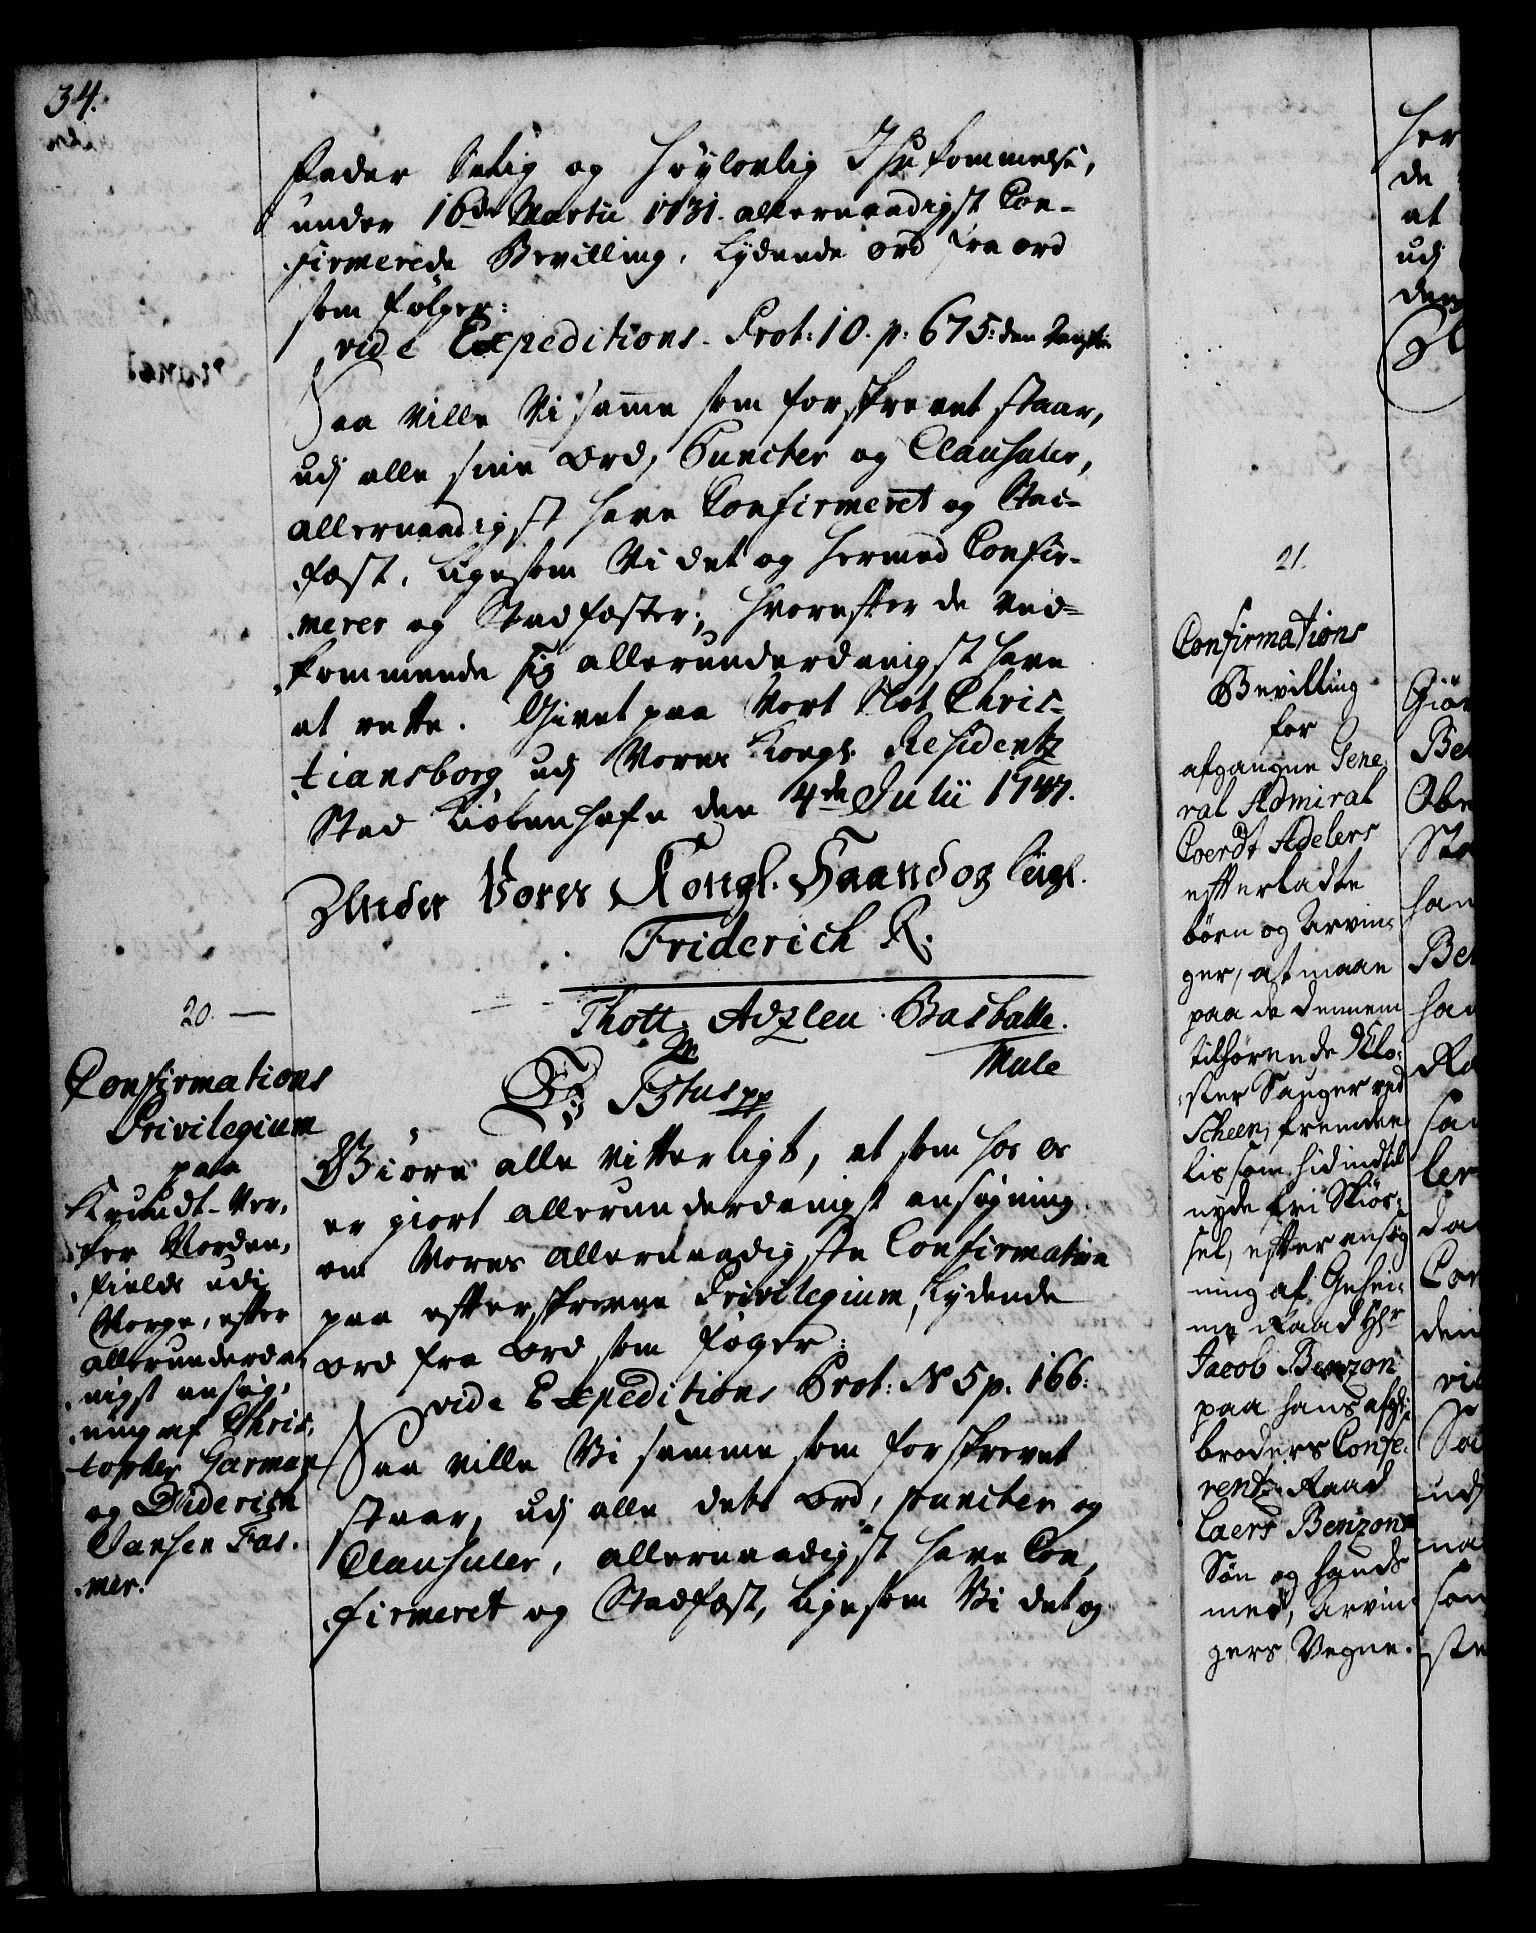 34.
Fader Salig og Høylovlig Ihukommelse,
under 16de Martii 1731. allernaadigst Con-
firmerede Bevilling, lydende ord fra ord
som følger:
vide Expeditions-Prot: 10. p: 675: den
Saa ville Vi samme som forskrevet staar,
udj alle sine ord, Puncter og Clausuler,
allernaadigst have Confirmeret og Stad-
fæst, ligesom Vi det og hermed Confir-
merer og Stadfæster; hvorefter de ved-
kommende sig allerunderdanigst have
at rette. Givet paa Vort Slot Chris-
tiansborg udj Vores Kongl. Residentz
Stad Kiøbenhafn den 4de Julii 1747.
Under Vores Kongl. Haand og Zigl.
Friderich R.
Thott. Adzleu Basballe.
Mule
20. —
Confirmations
Privilegium
paa
Krundt-Ver-
ker Norden-
fields udj
Norge, efter
allerunderda-
nigst ansøg-
ning af Chris-
topher Garman
og Diderich
Jansen Fas-
mer.
Fr: 5tus pp
Giøre alle vitterligt, at som hos os
er giort allerunderdanigst ansøgning
om Vores allernaadigste Confirmation
paa efterskrevne Privilegium, lydende
ord fra ord som føger:
vide Expeditions Prot: N 5 p. 166:
Saa ville Vi samme som forskrevet
staar, udj alle dets ord, puncter og
Clausuler, allernaadigst have Con-
firmeret og Stadfæst, ligesom Vi det og
21.
Confirmations
Bevilling
for
afgangne Gene-
ral Admiral
Coerdt Adelers
efterladte
børn og Arvin-
ger, at maae
paa de dennem
tilhørende Klo-
ster Sauger ved
Scheen, fremde-
lis som hidindtil
nyde fri Skiøs-
sel, efter ansøg
ning af Gehei-
me Raad Hr
Jacob Benzon
paa hans afgl:
broders Confe-
rentz Raad
Laers Benzons
Søn og hands
med Arvin-
gers Vegne.